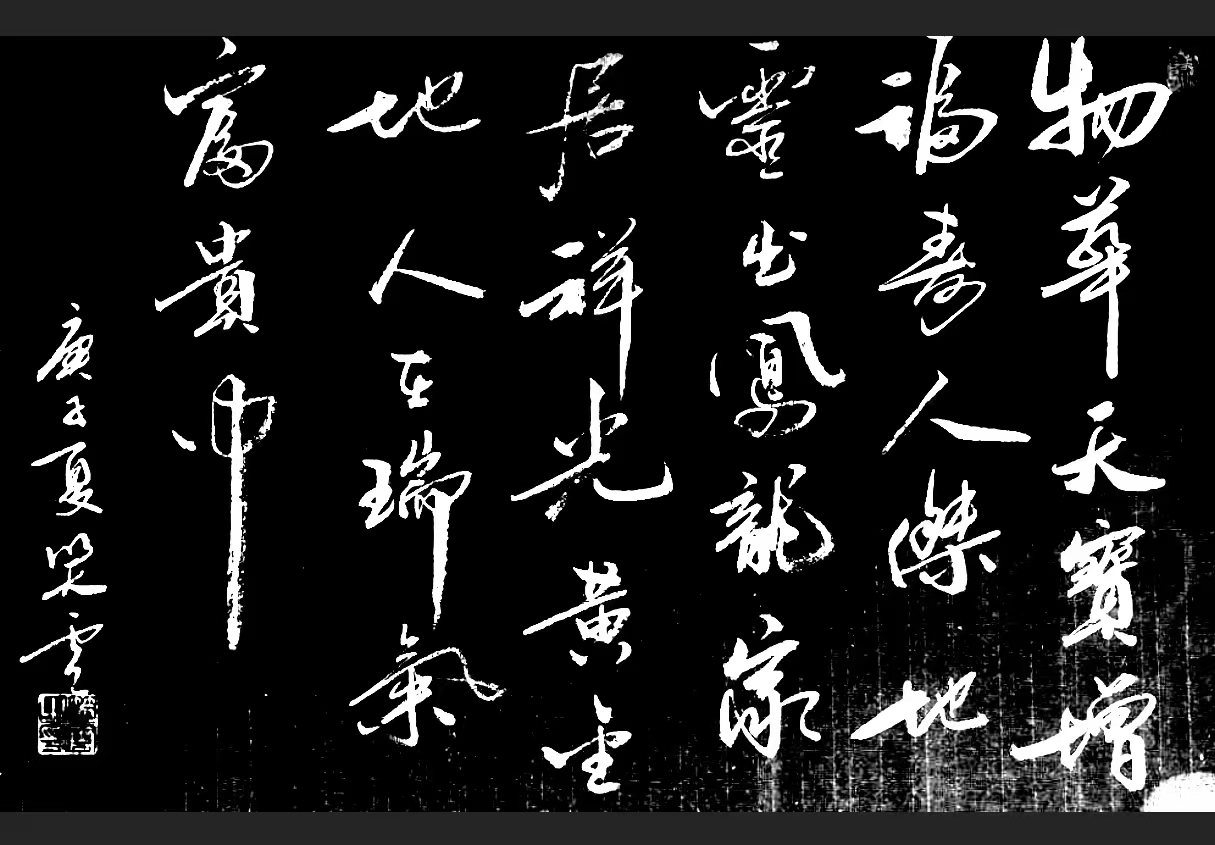 物華天寶增
福壽人傑地
靈出鳳龍家
居祥光黃金
地人在瑞氣
富貴中
庚子夏榮雲